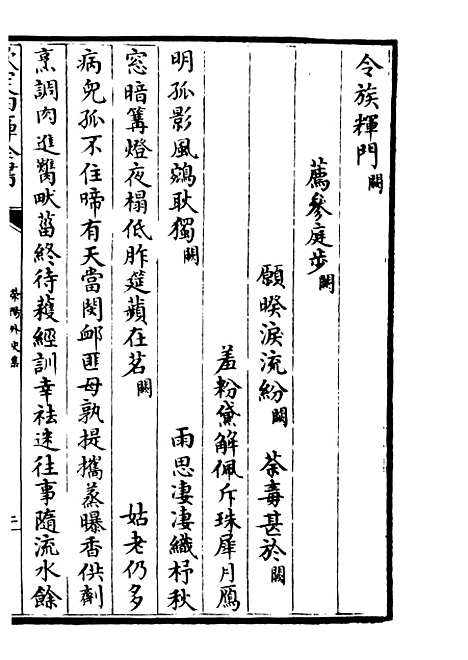 令族輝門闕
薦參庭步闕
願暌淚流紛闕　荼毒甚於闕
羞粉黛解佩斥珠犀月鴈
明孤影風鷀耿獨闕　雨思凄凄織杼秋
窓暗篝燈夜榻低胙筵蘋在茗闕　姑老仍多
病兒孤不住啼有天當閔卹匪母孰提攜蒸曝香供劑
烹調肉進臡畎菑終待穫經訓幸祛迷往事隨流水餘
滎陽外史集
二